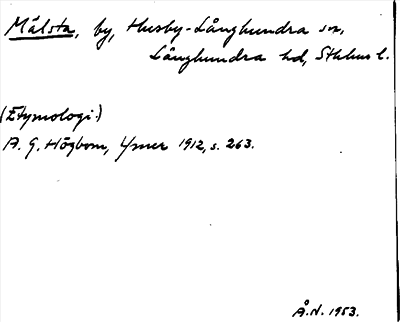 Mälsta, by, Husby-Långhundra sn,
Långhundra hd, Sthlms l.
(Etymologi.)
A. G. Högbom, Ymer 1912, s. 263.
Å.N. 1953.